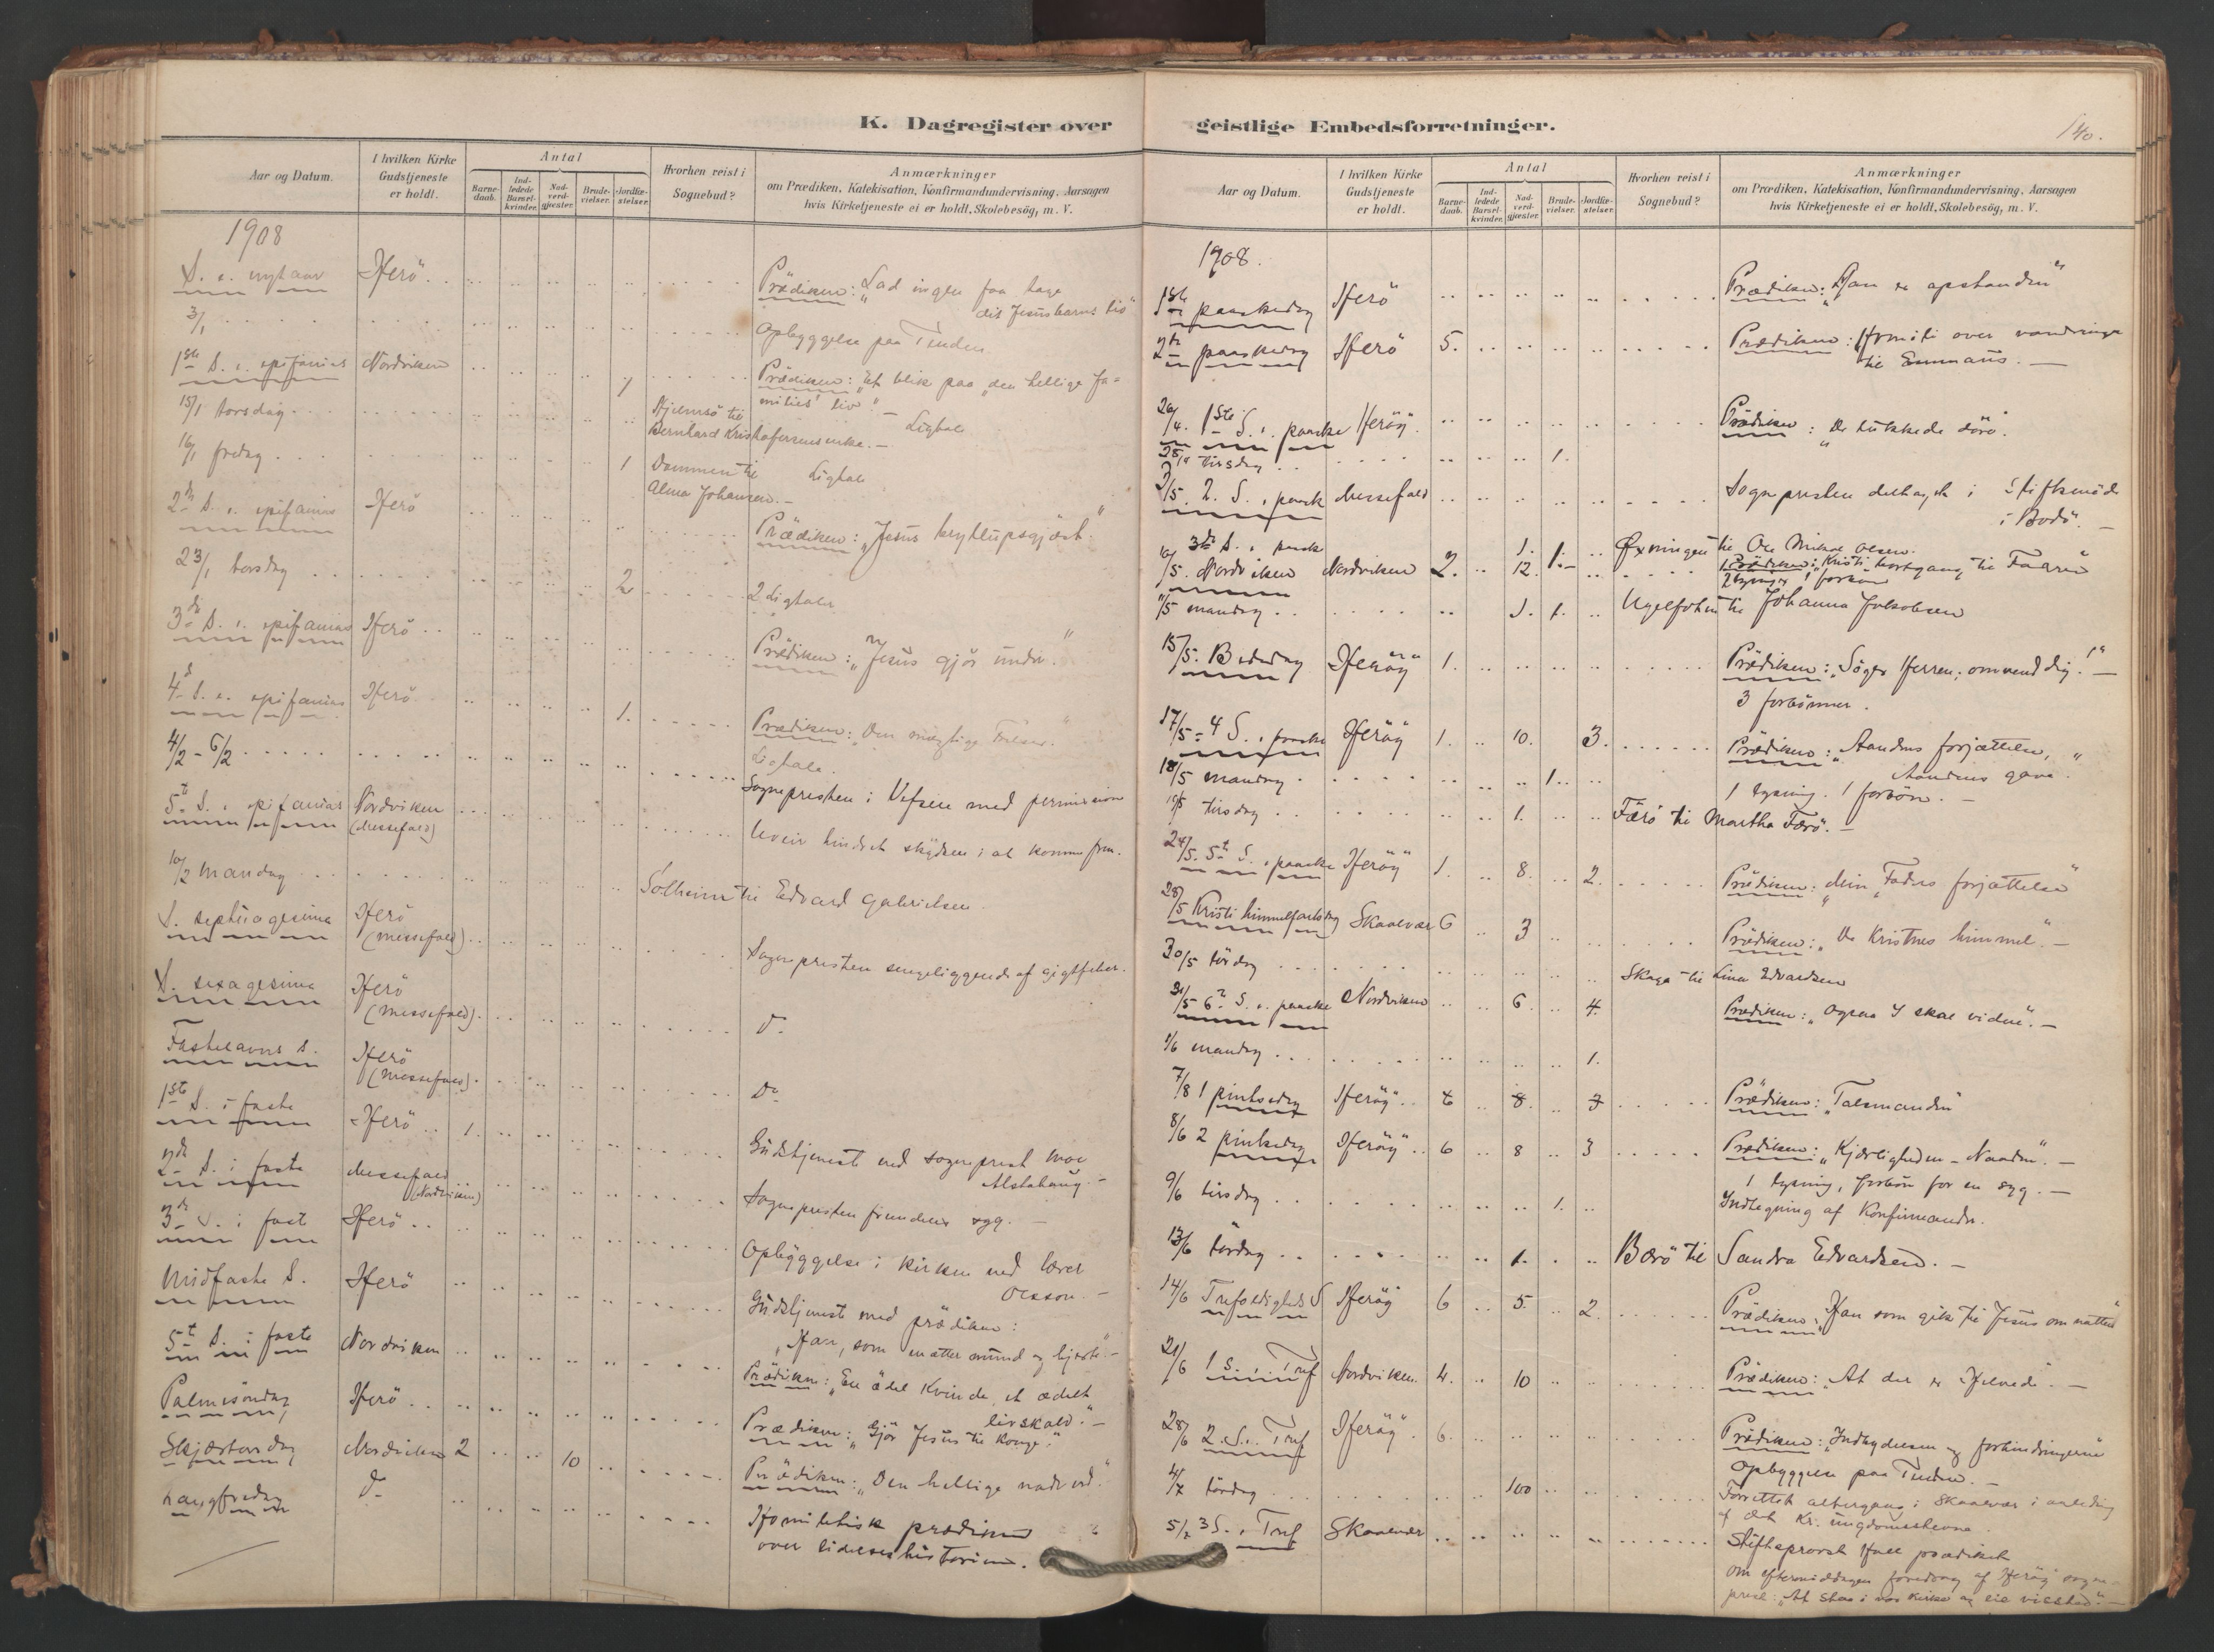 K. Dagregister over
Aar og Datum.
I hvilken Kirke Gudstjeneste er holdt.
Antal
Barne-daab.
Ind-ledede Barsel-kvinder.
Nad-verd-gjæster.
Brude-vielser.
Jordfæ-stelser.
Hvorhen reist i Sognebud?
Anmærkninger
om Prædiken, Katekisation, Konfirmandundervisning, Aarsagen
hvis Kirketjeneste ei er holdt, Skolebesög, m. V.
1908
S. e. nytaar Herö Prædiken: "Lad ingen faa tage
dit Jesusbarns liv"
3/1 Opbyggelse paa Tinden
1ste S. e. epifanias Nordviken Prædiken: "Et blik paa "den hellige fa=
milies" liv". —
15/1 torsdag 1 til Ligtale
Bernhard Kristofersens enke. —
16/1 fredag 1 Dammen til Ligtale
Alma Johansen. —
2den S. e. epifanias Herö Prædiken: "Jesus bryllupsgjæst".
23/1 torsdag 2 2 Ligtaler
3die S. e. epifanias Herö Prædiken: "Jesus gjör under."
4d S. e. epifanias Herö 1. Prædiken: "Den mægtige Frelser."
Ligtale.
4/2 - 6/2 Sognepresten i Vefsen med permission
5te S. e. epifanias Nordviken
(Messefald) Uveir hindret skydsen i at komme frem.
10/2 mandag Solheim til Edvard Gabrielsen.
S. septuagesima Herö
(messefald) Sognepresten sengeliggende af gigtfeber.
S. sexagesima Herö
(messefald). Do
Fastelavns S. Herö
(Messefald). Do
1ste S. i faste Herö 1. Gudstjeneste ved sogneprest Moe
Alstahaug. —
2den S. i faste Messefald
(Nordviken) Sognepresten fremdeles syg. —
3die S. i faste Herö Opbyggelse i kirken ved lærer
Olsson. —
Midfaste S. Herö Gudstjeneste med prædiken:
"Han, som mætter mund og hjerte". —
5te S. i faste Nordviken Prædiken: "En ædel Kvinde, et ædelt
livskald." —
Palmesöndag Herö Prædiken: "Gjör Jesus til Konge."
Skjærtorsdag Nordviken 2 10 Prædiken: "Den hellige nadverd."
Langfredag Do Homiletisk prædiken
over lidelseshistorien.
geistlige Embedsforretninger.
140.
Aar og Datum.
I hvilken Kirke Gudstjeneste er holdt.
Antal
Barne-daab.
Ind-ledede Barsel-kvinder.
Nad-verd-gjæster.
Brude-vielser.
Jordfæ-stelser.
Hvorhen reist i Sognebud?
Anmærkninger
om Prædiken, Katekisation, Konfirmandundervisning, Aarsagen
hvis Kirketjeneste ei er holdt, Skolebesög, m. V.
1908.
1ste paaskedag Herö Prædiken: "Han er opstanden"
2den paaskedag Herö 5. Prædiken: Homili over vandringen
til Emmaus. —
26/4. 1ste S. e. paaske Heröy Prædiken: "De lukkede döre".
28/4 tirsdag 1.
3/5. 2. S. e. paaske Messefald Sognepresten deltagende i Stiftsmöde
i Bodö. —
3die S. e. paaske 1. 1. Øxningen til Ole Mikal Olsen.
10/5. Nordviken Nordviken 2. 12. Prædiken: "Kristi bortgang til Faderen
1 forbön
11/5 mandag 1. 1. til Johanna Jakobsen
15/5. Bededag Heröy 1. Prædiken: "Söger Herren; omvend dig!" —
3 forbönner.
17/5 - 4 S. e. paaske Heröy 1. 10. 3. Prædiken: "Aandens forjættelse,
Aandens gave."
1 lysning. 1 forbön. —
18/5 mandag 1
19/5 tirsdag 1. Færö til Martha Færö. —
24/5. 5te S. e. paaske Heröy 1. 8. 2. Prædiken: "Min Faders forjættelse"
28/5 Kristi himmelfartsdag Skaalvær 6 3 Prædiken: "De Kristnes himmel". —
30/5 lördag Skaga til Lina Edvardsen
31/5 6te S. e. paaske Nordviken 6. 4. Prædiken: "Ogsaa I skal vidne". —
1/6 mandag 1.
7/8 1 pinsedag Heröy 6 8. 3 Prædiken: "Talsmanden"
8/6 2 pinsedag Heröy 6 8 3 Prædiken: "Kjærligheden - Naaden". —
1 lysning, forbön for en syg. —
9/6 tirsdag 1. Indtegning af Konfirmander.
13/6 lördag 1. Bærö til Sandra Edvardsen. —
14/6 Trefoldigheds S Heröy 6 5. 2. Prædiken: "Han som gik til Jesus om natten"
21/6 1 S. e. Tref Nordviken 4. 10 Prædiken: "At der er Helvede". —
28/6 2. S. e. Tref Heröy 6. Prædiken: "Indbydelsen og forhindringerne
Opbyggelse paa Tinden. —
4/7 lördag 100 Forrettet altergang i Skaalvær i anledning
af det Kr. ungdomsstevne
5/7 3 S. e. Tref Skaalvær Stiftsprovst Hall prædiket
om eftermiddagen foredrag af Heröy sogne-
prest: "At staa i vor Kirke